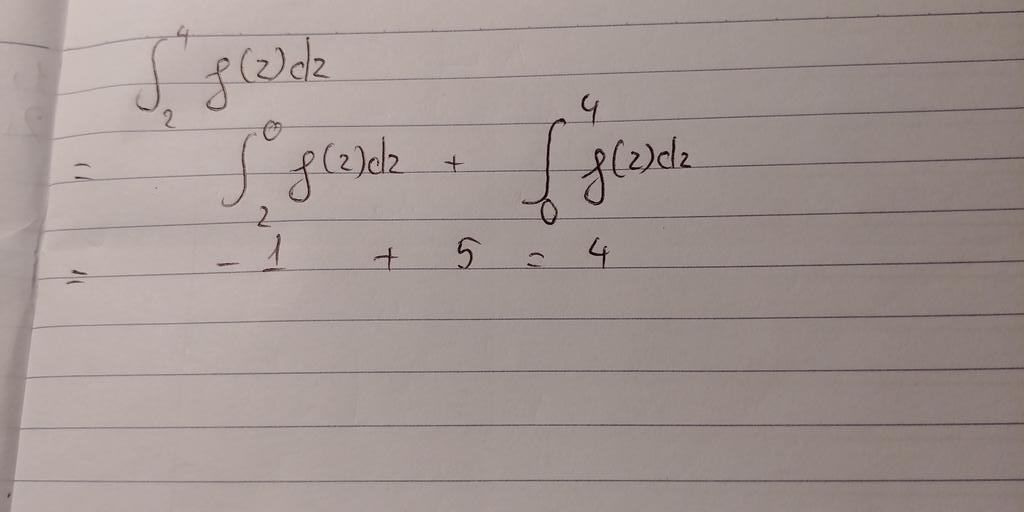 ∫₂⁴ f(z)dz
= ∫₂⁰ f(z)dz + ∫₀⁴ f(z)dz
= -1 + 5 = 4